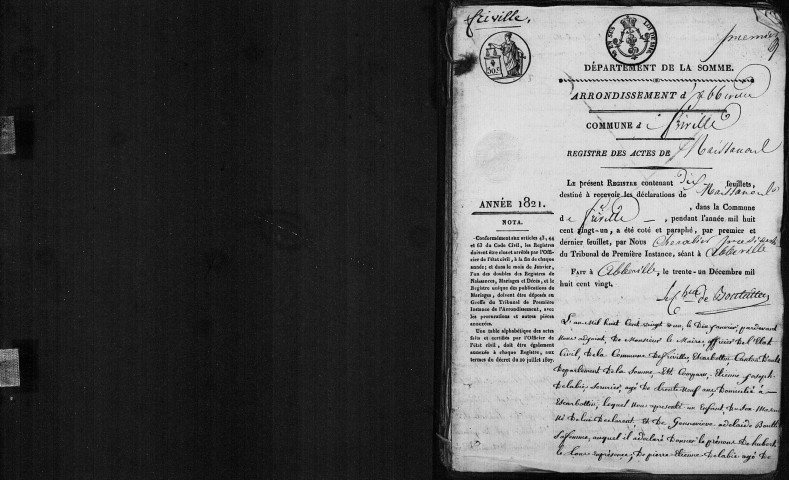 friville,
premier
DÉPARTEMENT DE LA SOMME.
ARRONDISSEMENT d'Abbeville
COMMUNE de friville
REGISTRE DES ACTES DE Naissances
ANNÉE 1821.
NOTA.
Conformément aux articles 43, 44
et 63 du Code Civil, les Registres
doivent être clos et arrêtés par l'Offi-
cier de l'état civil, à la fin de chaque
année; et dans le mois de Janvier,
l'un des doubles des Registres de
Naissances, Mariages et Décès, et le
Registre unique des publications de
Mariages, doivent être déposés au
Greffe du Tribunal de Première
Instance de l'Arrondissement, avec
les procurations et autres pièces
annexées.
Une table alphabétique des actes
faits et certifiés par l'Officier de
l'état civil, doit être également
annexée à chaque Registre, aux
termes du décret du 20 juillet 1807.
LE présent REGISTRE contenant dix feuillets,
destiné à recevoir les déclarations de Naissances
, dans la Commune
de friville, pendant l'année mil huit
cent vingt-un, a été coté et paraphé, par premier et
dernier feuillet, par Nous Chevalier président
du Tribunal de Première Instance, séant à Abbeville
FAIT à Abbeville, le trente-un Décembre mil
huit cent vingt.
L'an mil huit cent vingt un, le dix janvier, pardevant
nous adjoint, de Monsieur le Maire, officier de l'Etat
Civil, de la Commune de friville, Escarbotin, Canton d'ault
Departement de la Somme, Est Comparu, Etienne joseph
Delabie, serrurier, agé de trente neuf ans, domicilié à
Escarbotin, lequel nous a presenté un Enfant, du sexe Masculin
né de lui Declarant, et de Genneviève adelaïde
sa femme, auquel il a declaré donner le prénom de hubert
pierre Etienne Delabie agé de